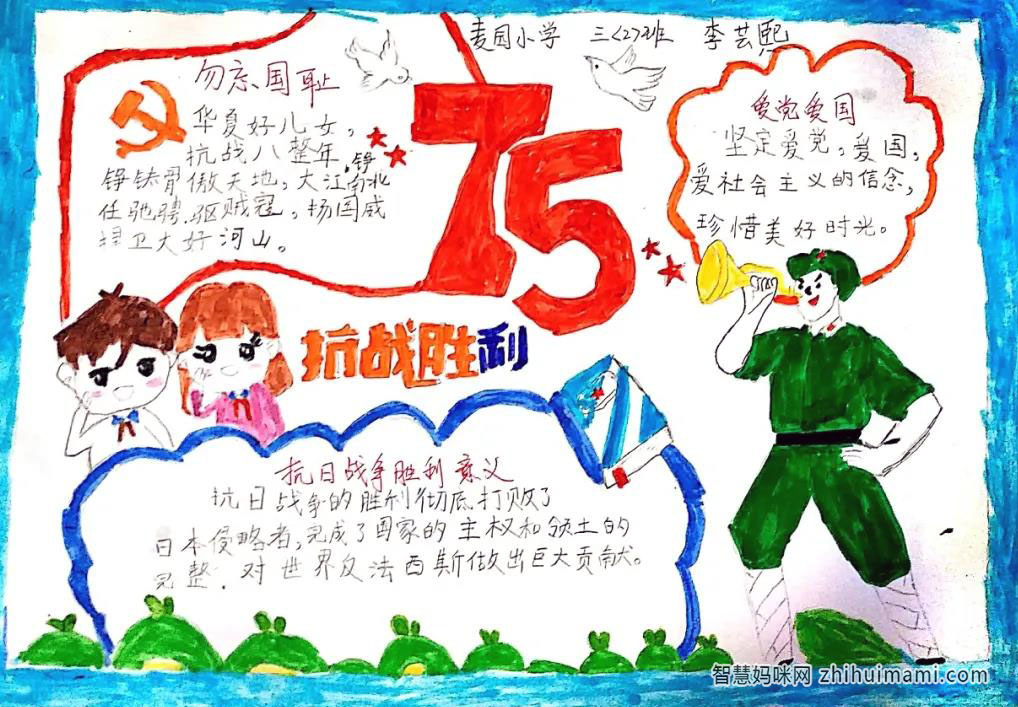 麦园小学 三(2)班 李芸熙
勿忘国耻
华夏好儿女,
抗战八整年,铮
铮铁骨傲天地,大江南北
任驰骋.驱贼寇,扬国威
捍卫大好河山。
75
爱党爱国
坚定爱党,爱国,
爱社会主义的信念,
珍惜美好时光。
抗战胜利
抗日战争胜利意义
抗日战争的胜利彻底打败了
日本侵略者,完成了国家的主权和领土的
完整.对世界反法西斯做出巨大贡献。
智慧妈咪网 zhihuimami.com